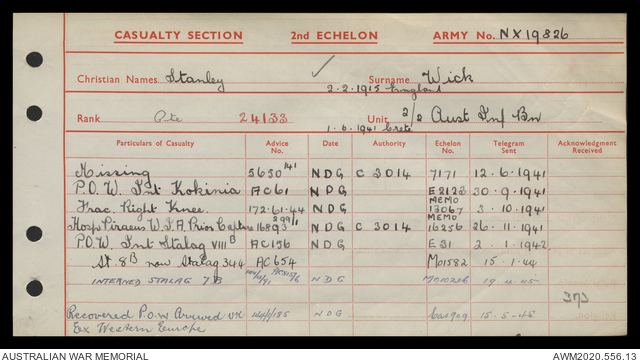 CASUALTY SECTION 2nd ECHELON ARMY No. NX19826
Christian Names Stanley Surname Wick
2.2.1915 England
Rank Pte 24133 Unit 2/2 Aust Inf Bn
1.6.1941 Crete
Particulars of Casualty Advice No. Date Authority Echelon No. Telegram Sent Acknowledgment Received
Missing 5650/41 NDG C3014 7171 12-6-1941
P.O.W. Int Kokinia AC61 NDG E2123 30-9-1941
Frac. Right Knee. 172-61-44 NDG MEMO 13067 3-10-1941
Hosp Piraeus W.I.A. Prior Capture 16893 NDG C3014 MEMO 16256 26-11-1941
P.O.W. Int Stalag VIIIB AC156 NDG E31 2-1-1942
St. 8B now Stalag 344 AC654 M01582 15-1-44
INTERNED STALAG 7B NDG
373
Recovered P.O.W Arrived UK NDG 15-5-45
Ex Western Europe
AUSTRALIAN WAR MEMORIAL AWM2020.556.13